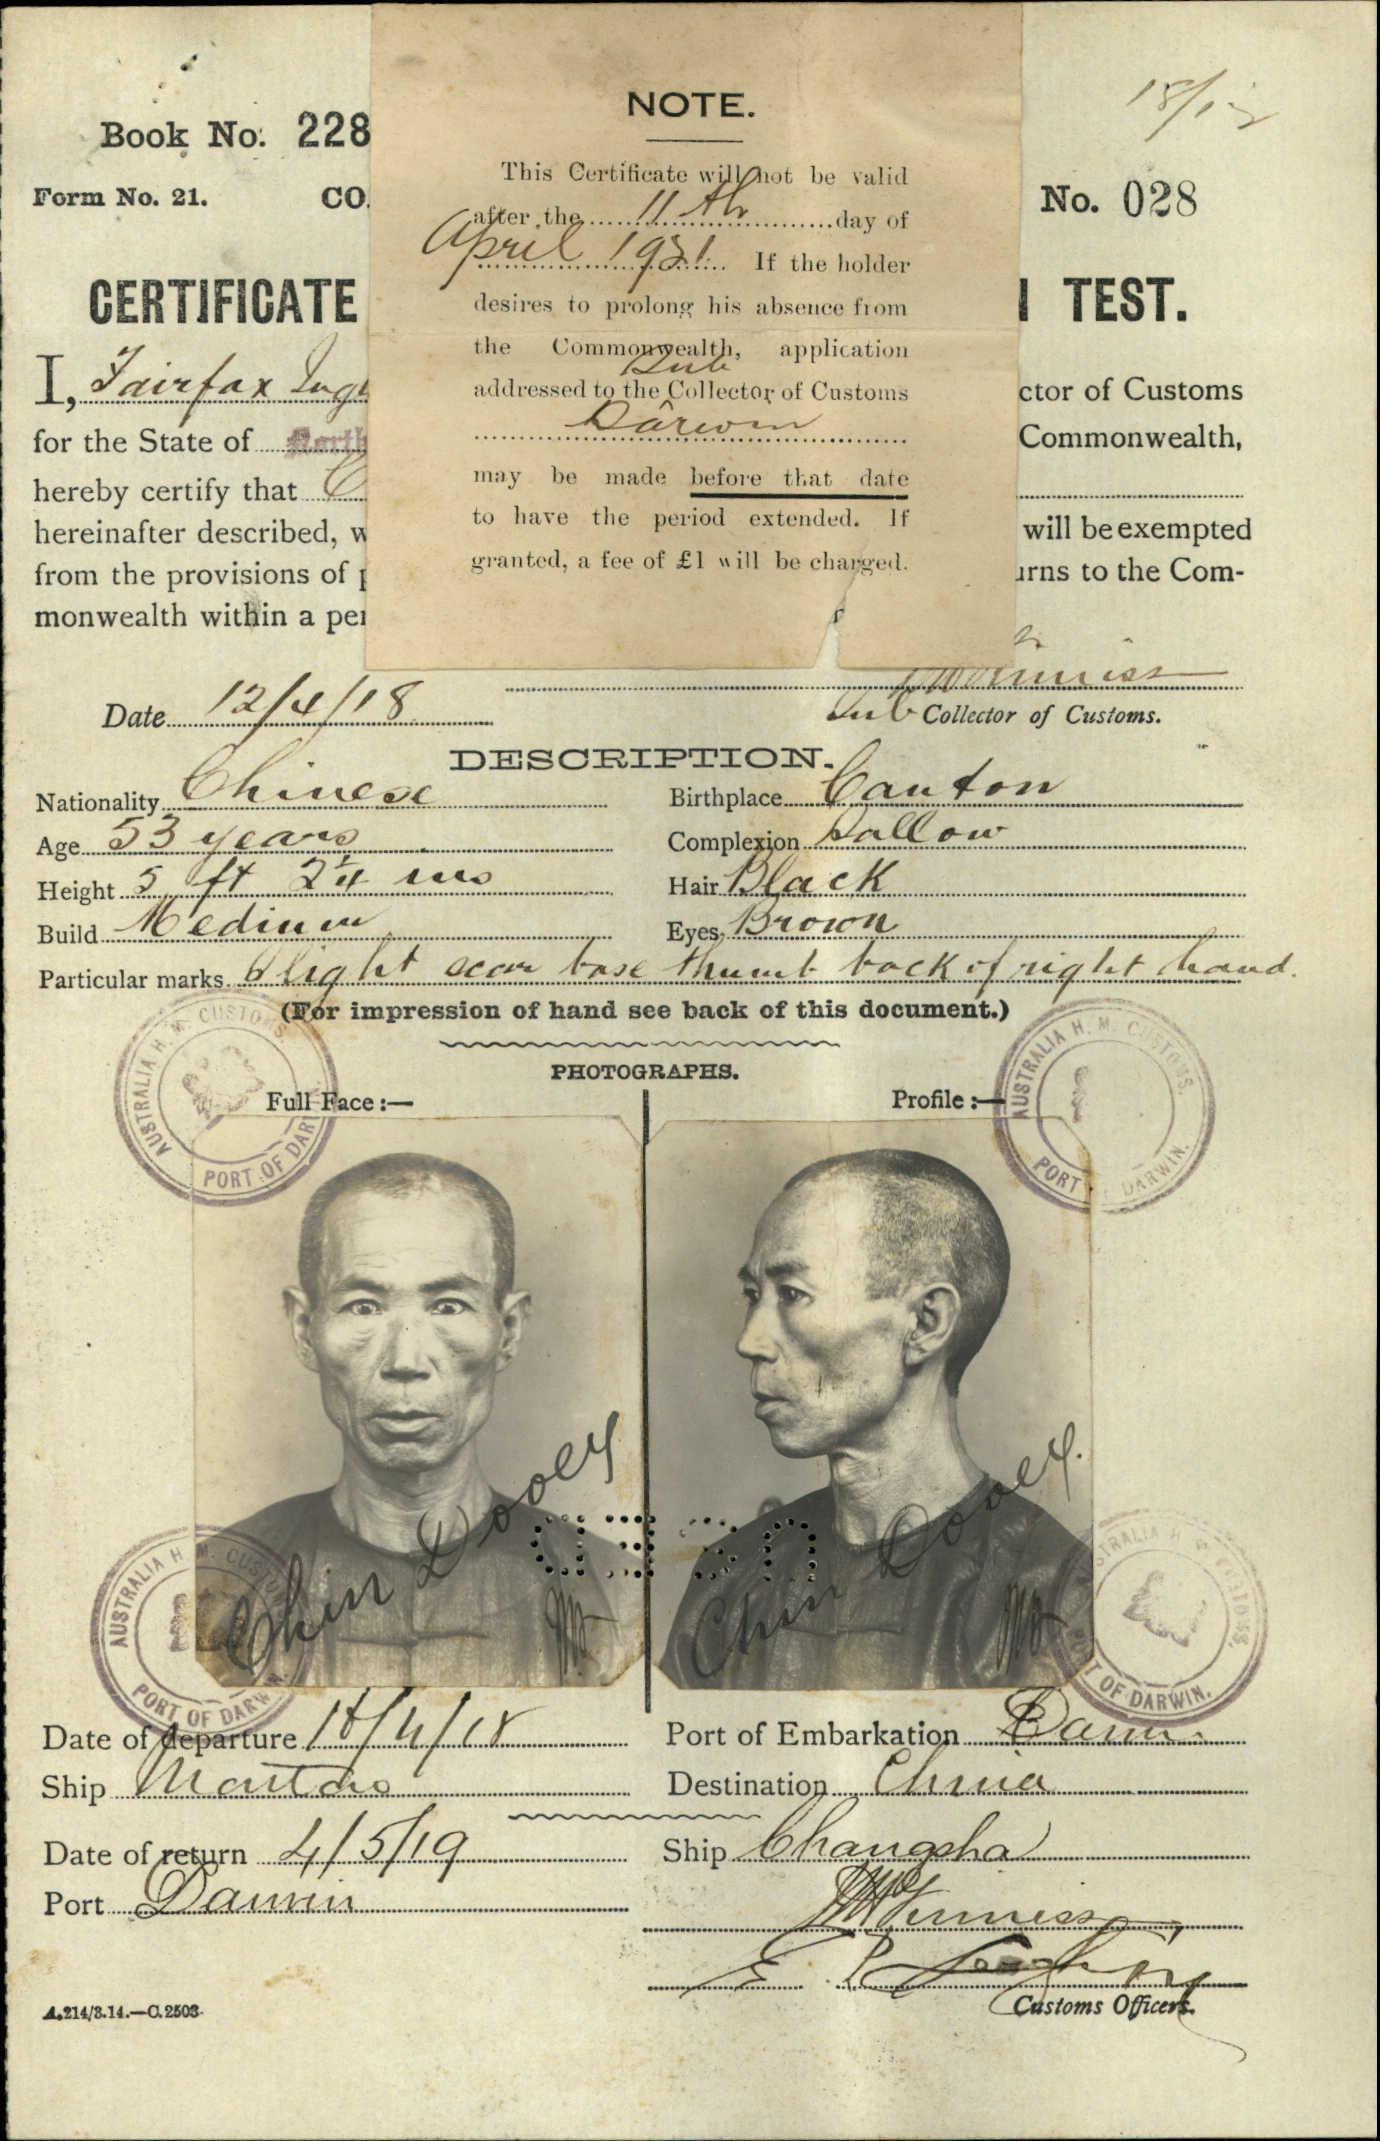 18/12
Book No. 228
NOTE.
This Certificate will not be valid
after the 11th day of
April 1921. If the holder
desires to prolong his absence from
the Commonwealth, application
addressed to the Sub Collector of Customs
Darwin
may be made before that date
to have the period extended. If
granted, a fee of £1 will be charged.
Form No. 21. CO
No. 028
CERTIFICATE
TEST.
I, Fairfax
ctor of Customs
for the State of North
Commonwealth,
hereby certify that C
hereinafter described, w
will be exempted
from the provisions of p
urns to the Com-
monwealth within a per
Date 12/4/18
Sub Collector of Customs.
DESCRIPTION.
Nationality Chinese
Birthplace Canton
Age 53 years
Complexion Sallow
Height 5 ft 2¼ ins
Hair Black
Build Medium
Eyes Brown
Particular marks Slight scar base thumb back of right hand.
(For impression of hand see back of this document.)
PHOTOGRAPHS.
Full Face :—
Profile :—
AUSTRALIA H. M. CUSTOMS
PORT OF DARW
AUSTRALIA H. M. CUSTOMS.
PORT DARWIN.
Chin Dooey
Chin Dooey.
USED
AUSTRALIA H. M. CUSTOM
PORT OF DARWIN.
STRALIA H. M. CUSTOMS.
PORT OF DARWIN.
Date of departure 18/4/18
Port of Embarkation Darwin
Ship Mataro
Destination China
Date of return 4/5/19
Ship Changsha
Port Darwin
Customs Officers.
A.214/3.14.—C.2503